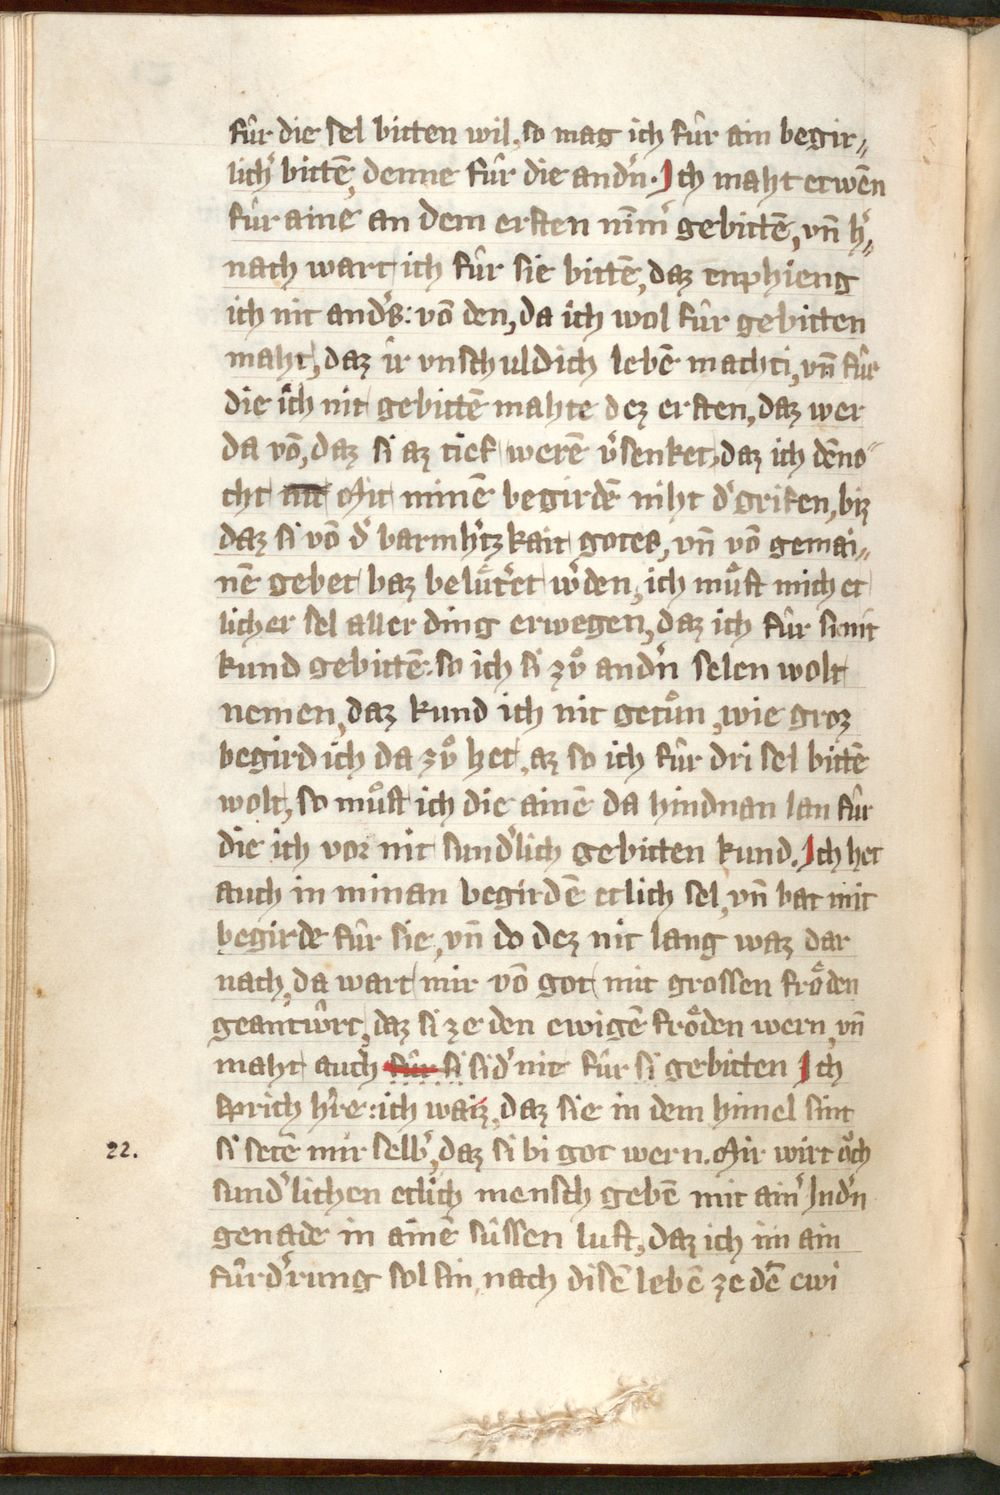 fûr die sel bitten wil, so mag ich fûr ain begir„
lich̓ bittē, denne fûr die and̓n. Ich maht etwēn
fûr aine an dem ersten nim̄̓ gebittē, vn̄ h̓„
nach wart ich fûr sie bittē, daz enphieng
ich nit and̓s: vō den, da ich wol fûr gebitten
maht, daz ir vnschuldich lebē machti, vn̄ fûr
die ich nit gebittē mahte dez ersten, daz wer
da vō, daz si az tief werē v̓senket, daz ich dēno„
cht nit Mit minē begirdē niht d̓grifen, biz
daz si vō d̓ barmh̓tzkait gotes, vn̄ vō gemai„
nē gebet baz belût̓et w̓den, ich mûst mich et
licher sel aller ding erwegen, daz ich fûr si nit
kund gebittē. so ich si zů and̓n selen wolt
nemen, daz kund ich nit getůn, wie groz
begird ich da zů het, az so ich fûr dri sel bittē
wolt, so můst ich die ainē da hindnan lan fûr
die ich vor nit sund̓lich gebitten kund. Ich het
auch in minan begirdē etlich sel, vn̄ bat mit
begirde fûr sie, vn̄ do dez nit lang waz dar
nach, da wart mir vō got mit grossen fröden
geantwrt, daz si ze den ewigē fröden wern, vn̄
maht auch fûr si sid̓ nit fûr si gebitten Ich
sprich h̓re: ich waiz, daz sie in dem himel sint
si setē mir selb̓, daz si bi got wern. Mir wirt öch
22.
sund̓lichen etlich mensch gebē mit ain̓ Ind̓n
genade in ainē sûssen lust, daz ich im ain
fûrd̓rung sol sin, nach disē lebē ze dē ewi